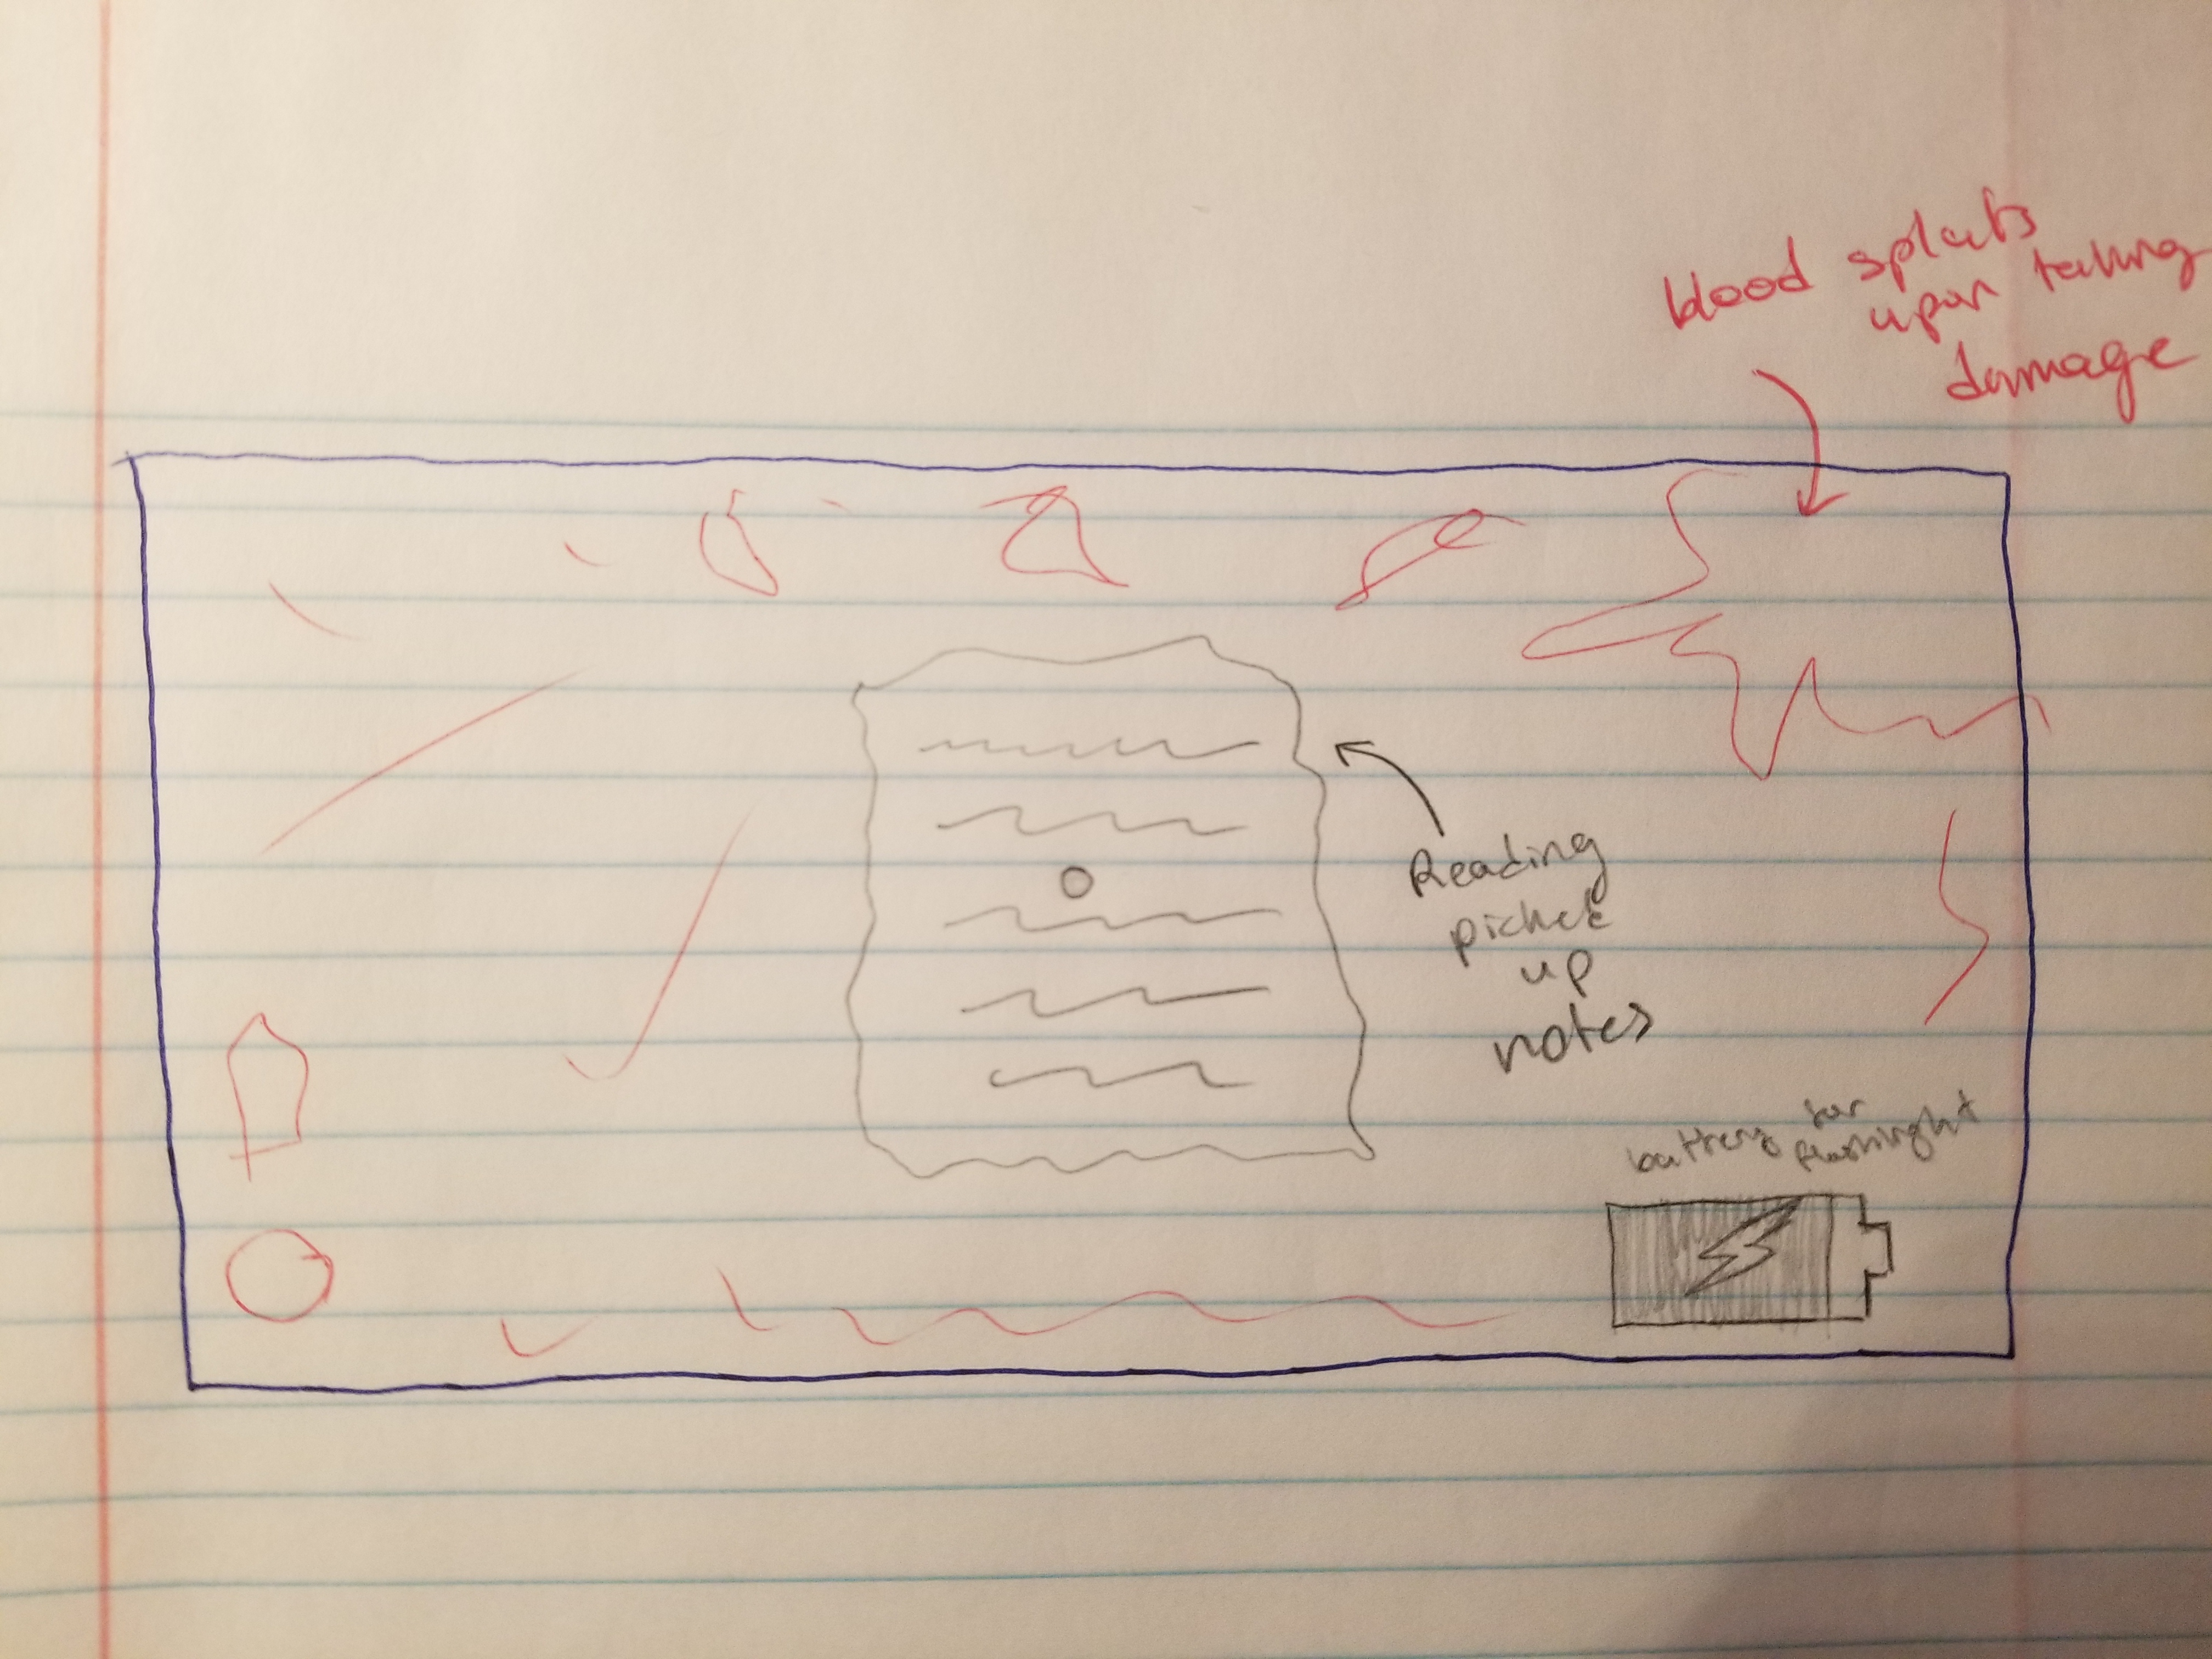 blood splats
upon taking
damage
Reading
picked
up
notes
battery for
flashlight